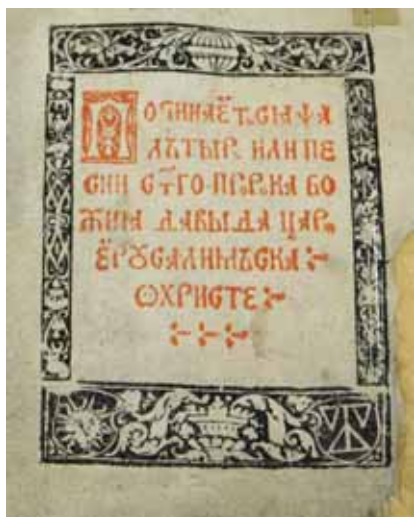 ПОЧИНАЁТСѦ ѰА
ЛЪТЫРЬ ИЛИ ПЕ
СНИ СТ҃ГО ПРР҃КА БО
ЖИꙖ ДАВЫДА ЦАРѦ
ЁРꙊСАЛИМЪСКА
ѠХРИСТЕ